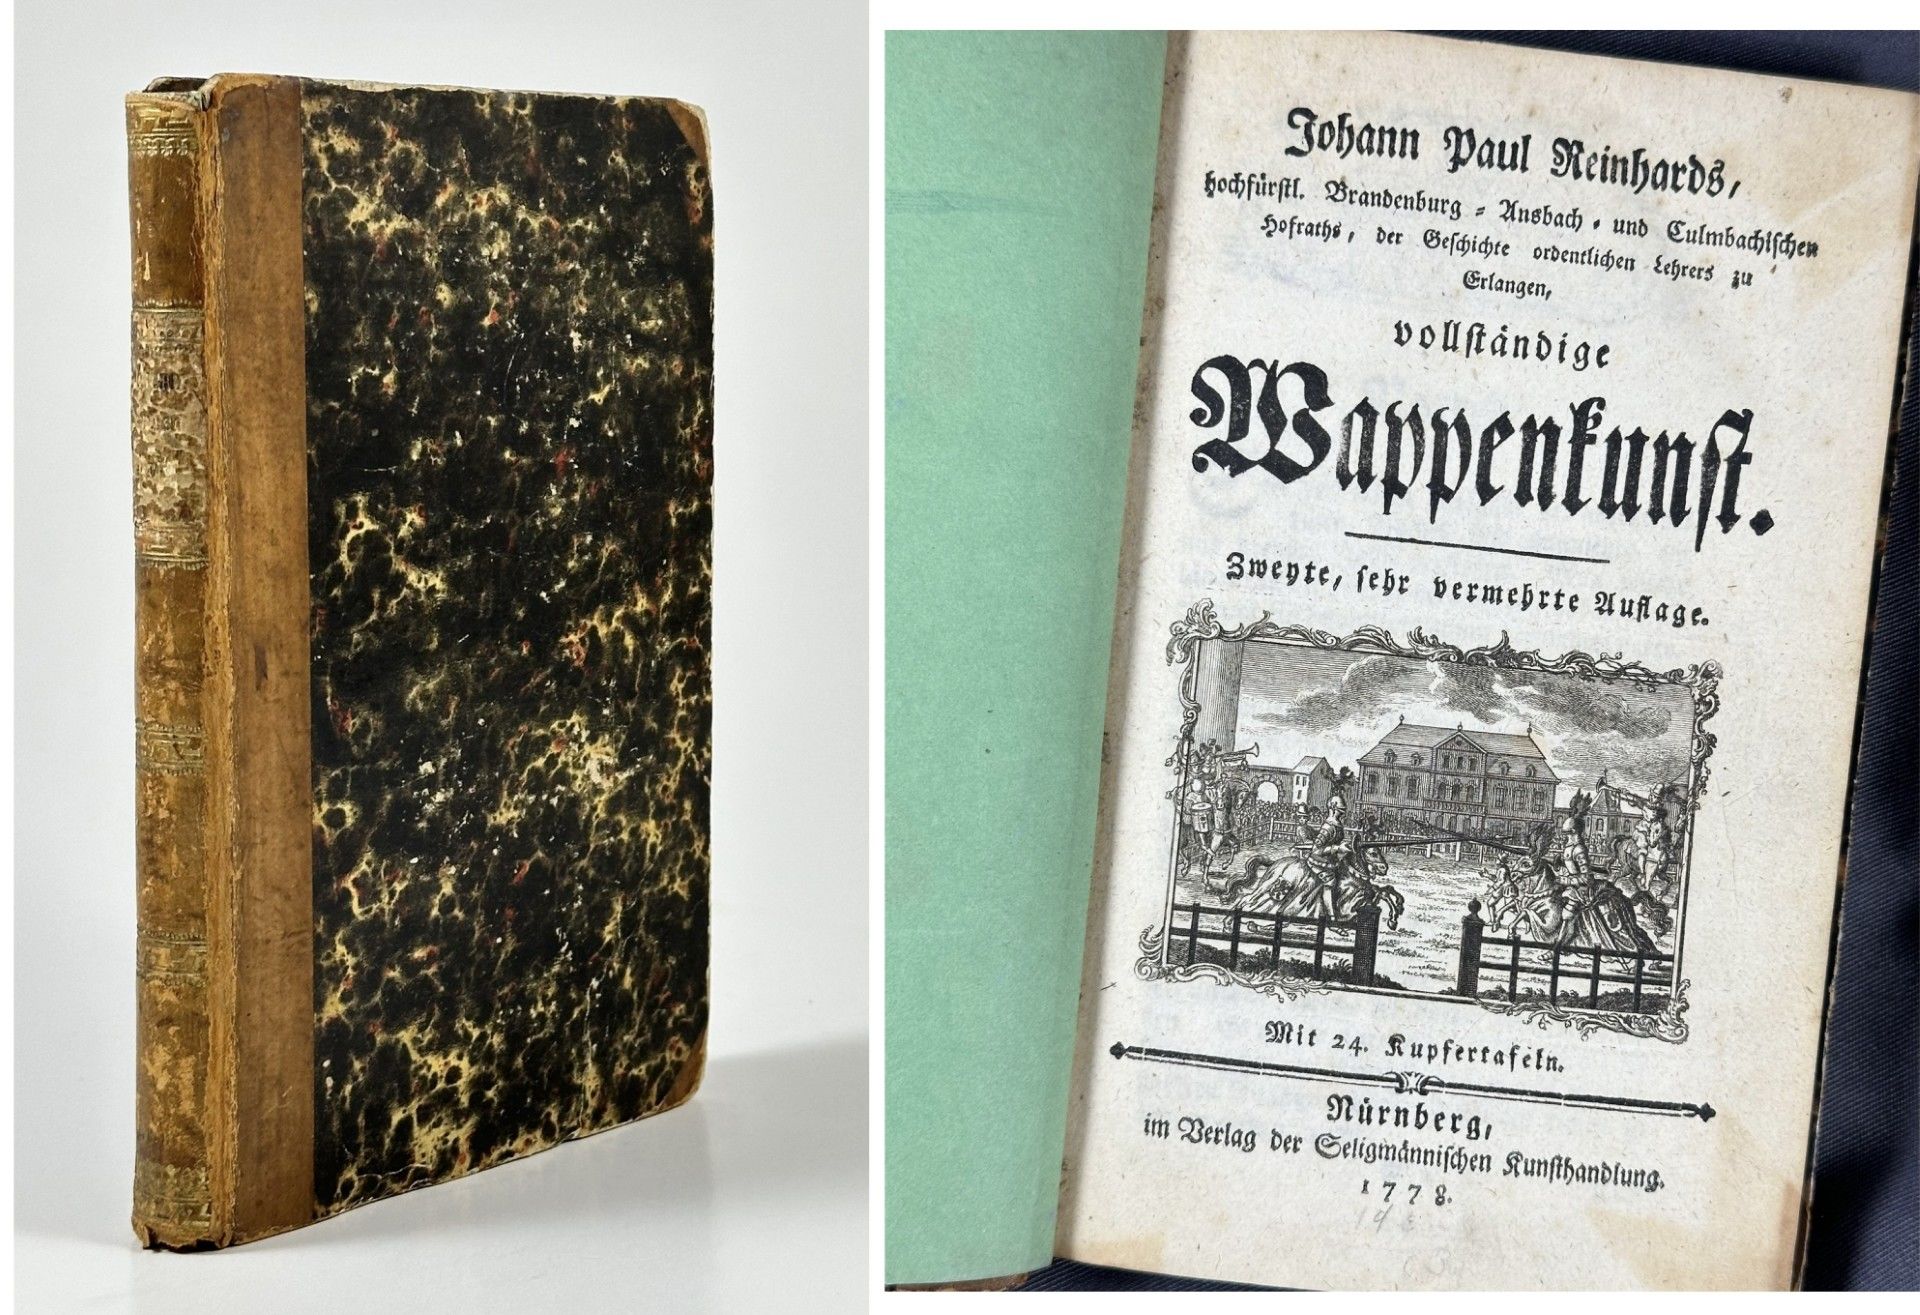 Johann Paul Reinhards,
hochfürstl. Brandenburg = Ansbach = und Culmbachischen
Hofraths, der Geschichte ordentlichen Lehrers zu
Erlangen,
vollſtändige
Wappenkunſt.
Zweyte, ſehr vermehrte Auflage.
Mit 24. Kupfertafeln.
Nürnberg,
im Verlag der Seligmänniſchen Kunſthandlung.
1778.